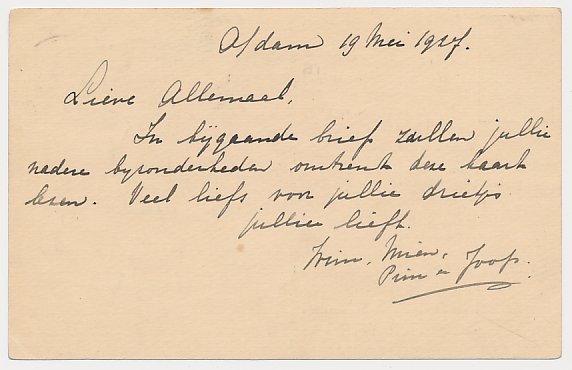 A/dam 19 Mei 1927.
Lieve Allemaal,
In bijgaande brief zullen jullie
nadere byzonderheden omtrent deze kaart
lezen. Veel liefs voor jullie drietjes
jullie lieft.
Wim, Mien,
Pim en Joop.